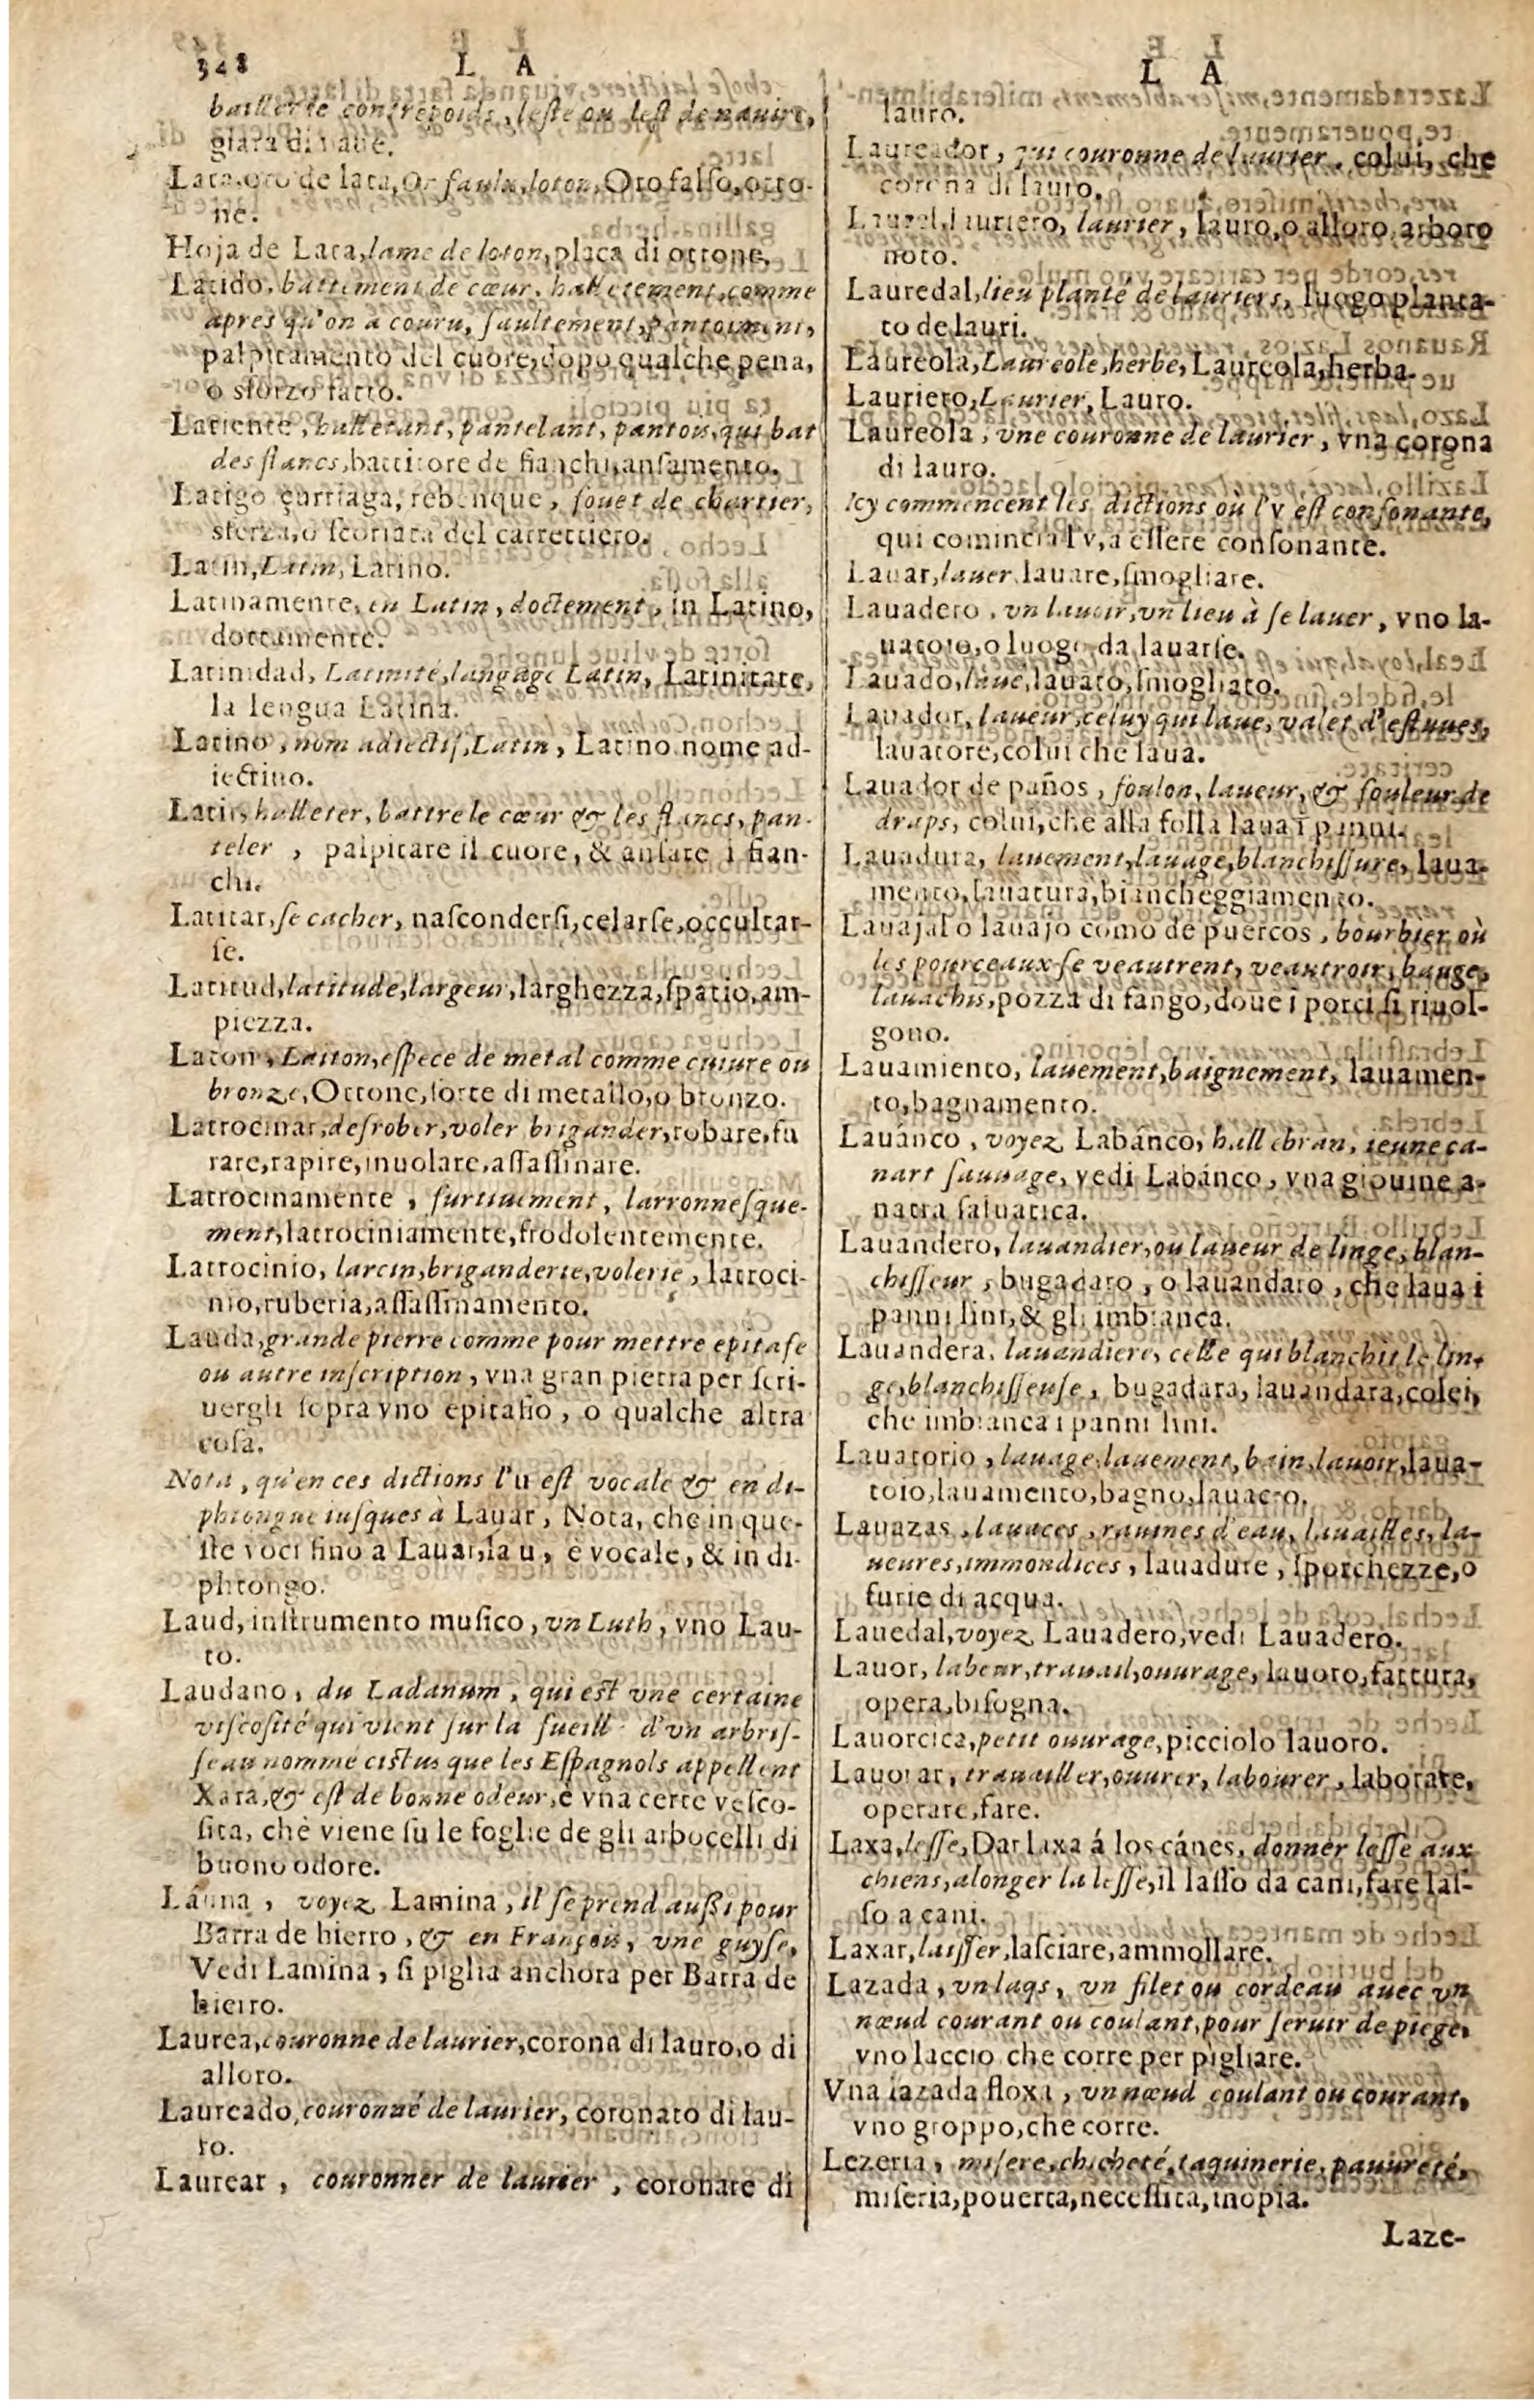 348
L A
baillerie contrepoids, leste ou lest de nauire,
giara di naue.
Lata, oro de lata, Or faulx, loton, Oro falso, otto-
ne.
Hoja de Lata, lame de loton, placa di ottone.
Latido, battement de cœur, halletement, comme
apres qu'on a couru, saultement, pantoiment,
palpitamento del cuore, dopo qualche pena,
o sforzo fatto.
Latiente, halletant, pantelant, pantois, qui bat
des flancs, battitore de fianchi, ansamento.
Latigo çurriaga, rebenque, fouet de chartier,
sferza, o scoriata del carrettiero.
Latin, Latin, Latino.
Latinamente, en Latin, doctement, in Latino,
dottamente.
Latinidad, Latinité, langage Latin, Latinitate,
la lengua Latina.
Latino, nom adiectif, Latin, Latino nome ad-
iectiuo.
Latir, halleter, battre le cœur & les flancs, pan-
teler, palpitare il cuore, & ansare i fian-
chi.
Latitar, se cacher, nascondersi, celarse, occultar-
se.
Latitud, latitude, largeur, larghezza, spatio, am-
piezza.
Laton, Laiton, espece de metal comme cuiure ou
bronze, Ottone, sorte di metallo, o bronzo.
Latrocinar, desrober, voler brigander, robare, fu
rare, rapire, inuolare, assassinare.
Latrocinamente, furtiuement, larronnesque-
ment, latrociniamente, frodolentemente.
Latrocinio, larcin, briganderie, volerie, latroci-
nio, ruberia, assassinamento.
Lauda, grande pierre comme pour mettre epitafe
ou autre inscription, vna gran pietra per scri-
uergli sopra vno epitafio, o qualche altra
cosa.
Nota, qu'en ces dictions l'u est vocale & en di-
phtongue iusques à Lauar, Nota, che in que-
ste voci fino a Lauar, la u, è vocale, & in di-
phtongo.
Laud, instrumento musico, vn Luth, vno Lau-
to.
Laudano, du Ladanum, qui est vne certaine
viscosité qui vient sur la fueill d'vn arbris-
seau nommé cistus que les Espagnols appellent
Xara, & est de bonne odeur, è vna certe vesco-
sita, chè viene su le foglie de gli arbocelli di
buono odore.
Láuna, voyez Lamina, il se prend aussi pour
Barra de hierro, & en François, vne guyse,
Vedi Lamina, si piglia anchora per Barra de
hierro.
Laurea, couronne de laurier, corona di lauro, o di
alloro.
Laureado, couronné de laurier, coronato di lau-
ro.
Laurear, couronner de laurier, coronare di
L A
lauro.
Laureador, qui couronne de laurier, colui, che
corona di lauro.
Laurel, lauriero, laurier, lauro, o alloro arboro
noto.
Lauredal, lieu planté de lauriers, luogo planta-
to de lauri.
Laureola, Laureole, herbe, Laureola, herba.
Lauriero, Laurier, Lauro.
Laureola, vne couronne de laurier, vna corona
di lauro.
Icy commencent les dictions où l'v est consonante,
qui comincia l'v, a essere consonante.
Lauar, lauer, lauare, smogliare.
Lauadero, vn lauoir, vn lieu à se lauer, vno la-
uatoio, o luogo da lauarse.
Lauado, laué, lauato, smogliato.
Lauador, laueur, celuy qui laue, valet d'estuues,
lauatore, colui che laua.
Lauador de paños, foulon, laueur, & fouleur de
draps, colui, che alla folla laua i panni.
Lauadura, lauement, lauage, blanchissure, laua-
mento, lauatura, biancheggiamento.
Lauajal o lauajo como de puercos, bourbier où
les pourceaux se veautrent, veautroir, bauge,
lauachis, pozza di fango, doue i porci si riuol-
gono.
Lauamiento, lauement, baignement, lauamen-
to, bagnamento.
Lauánco, voyez Labánco, hallebran, ieune ca-
nart sauuage, vedi Labánco, vna giouine a-
natra saluatica.
Lauandero, lauandier, ou laueur de linge, blan-
chisseur, bugadaro, o lauandaro, che laua i
panni lini, & gli imbianca.
Lauandera, lauandiere, celle qui blanchit le lin-
ge, blanchisseuse, bugadara, lauandara, colei,
che imbianca i panni lini.
Lauatorio, lauage, lauement, bain, lauoir, laua-
toio, lauamento, bagno, lauacro.
Lauazas, lauaces, rauines d'eau, lauailles, la-
ueures, immondices, lauadure, sporchezze, o
furie di acqua.
Lauedal, voyez Lauadero, vedi Lauadero.
Lauor, labeur, trauail, ouurage, lauoro, fattura,
opera, bisogna.
Lauorcica, petit ouurage, picciolo lauoro.
Lauorar, trauailler, ouurer, labourer, laborare,
operare, fare.
Laxa, lesse, Dar laxa á los cánes, donner lesse aux
chiens, alonger la lesse, il lasso da cani, fare las-
so a cani.
Laxar, laisser, lasciare, ammollare.
Lazada, vn laqs, vn filet ou cordeau auec vn
nœud courant ou coulant, pour seruir de piege,
vno laccio che corre per pigliare.
Vna lazada floxa, vn nœud coulant ou courant,
vno groppo, che corre.
Lezeria, misere, chicheté, taquinerie, pauureté,
miseria, pouerta, necessita, inopia.
Laze-